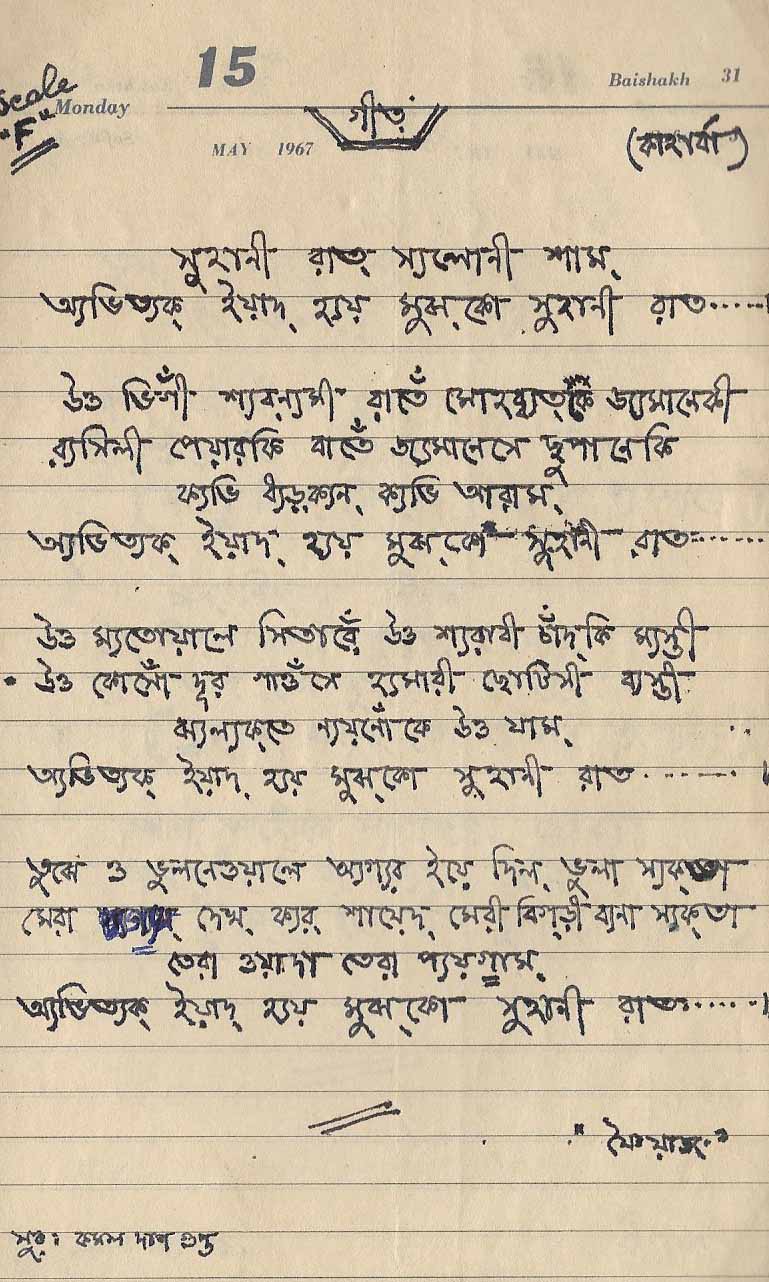 15
Baishakh 31
Scale
Monday
"F"
গীত
MAY 1967
(কাহার্বা)
সুহানী রাত্ স্যলোনী শাম্
অ্যভিত্যক্ ইয়াদ্ হ্যয় মুঝ্কো সুহানী রাত......।
উও ভিগীঁ শ্যবন্যমী রাতেঁ মোহব্ব্যত্কে জ্যমানেকী
র‍্যসিলী পেয়ারকি বাতেঁ জ্যমানেসে ছুপানেকি
ক্যভি ধ্যড়্ক্যন্ ক্যভি আরাম্
অ্যভিত্যক্ ইয়াদ্ হ্যয় মুঝ্কো সুহানী রাত......
উও ম্যতোয়ালে সিতারেঁ উও শ্যরাবী চাঁদ্কি ম্যস্তী
উও কোসোঁ দূর গাওঁসে হ্যমারী ছোটিসী ব্যস্তী
ঝ্যল্যক্তে ন্যয়নোঁকে উও যাম্
অ্যভিত্যক্ ইয়াদ্ হ্যয় মুঝ্কো সুহানী রাত......।
তুঝে ও ভুলনেওয়ালে অ্যগ্যর ইয়ে দিল্ ভুলা স্যক্তা
মেরা দেখ্ ক্যর্ শায়েদ্ মেরী বিগ্ড়ী ব্যনা স্যক্তা
তেরা ওয়াদা তেরা প্যয়গাম্
অ্যভিত্যক্ ইয়াদ্ হ্যয় মুঝ্কো সুহানী রাত......।
"ফৈয়াজ্"
সুর: কমল দাশ গুপ্ত